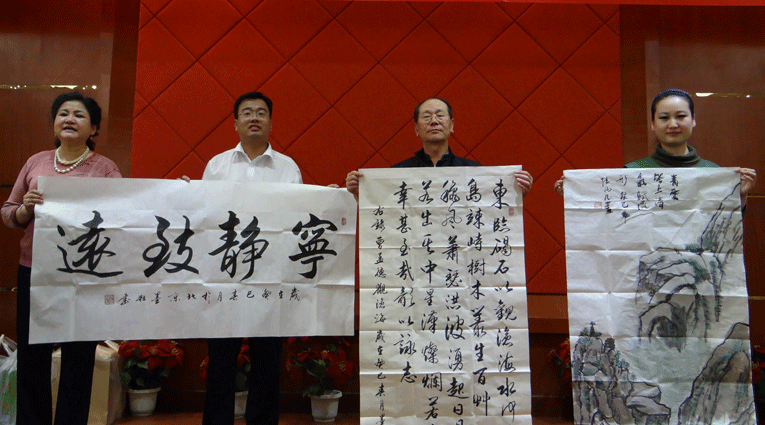 寧靜致遠
歲在癸巳春月於北京
東臨碣石以觀滄海水何
島竦峙樹木叢生百艸
秋風蕭瑟洪波湧起日月
若出其中星漢燦爛若
幸甚至哉歌以詠志
右錄曹孟德觀滄海歲在癸巳春月